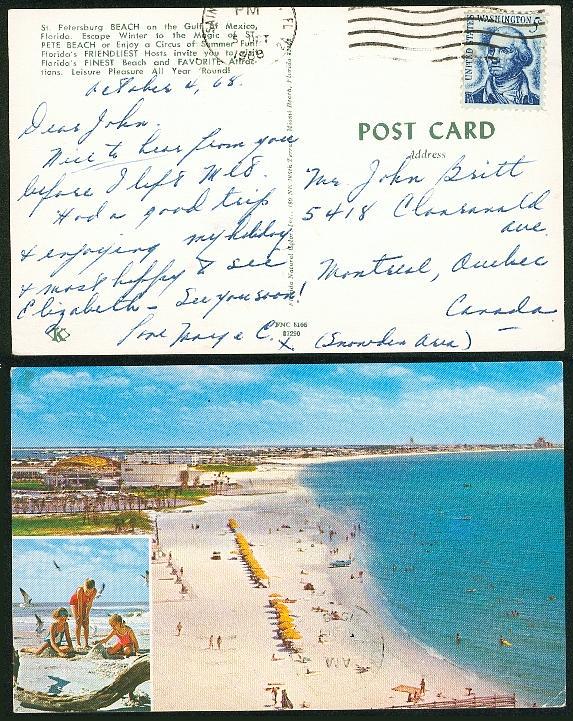 St. Petersburg BEACH on the Gulf of Mexico,
Florida. Escape Winter to the Magic of ST.
PETE BEACH or Enjoy a Circus of Summer Fun!
Florida's FRIENDLIEST Hosts invite you to
Florida's FINEST Beach and FAVORITE Attrac-
tions. Leisure Pleasure All Year 'Round!
October 4, 68.
Dear John.
Nice to hear from you
before I left Mtl.
Had a good trip
& enjoying my holiday
& most happy to see
Elizabeth - See you soon!
Love C. x
K
FNC 8106
PM
1968
UNITED STATES
WASHINGTON 5c
POST CARD
Address
Mr. John Britt
5418 Clanranald
ave.
Montreal, Quebec
Canada
(Snowdon Area)
AM